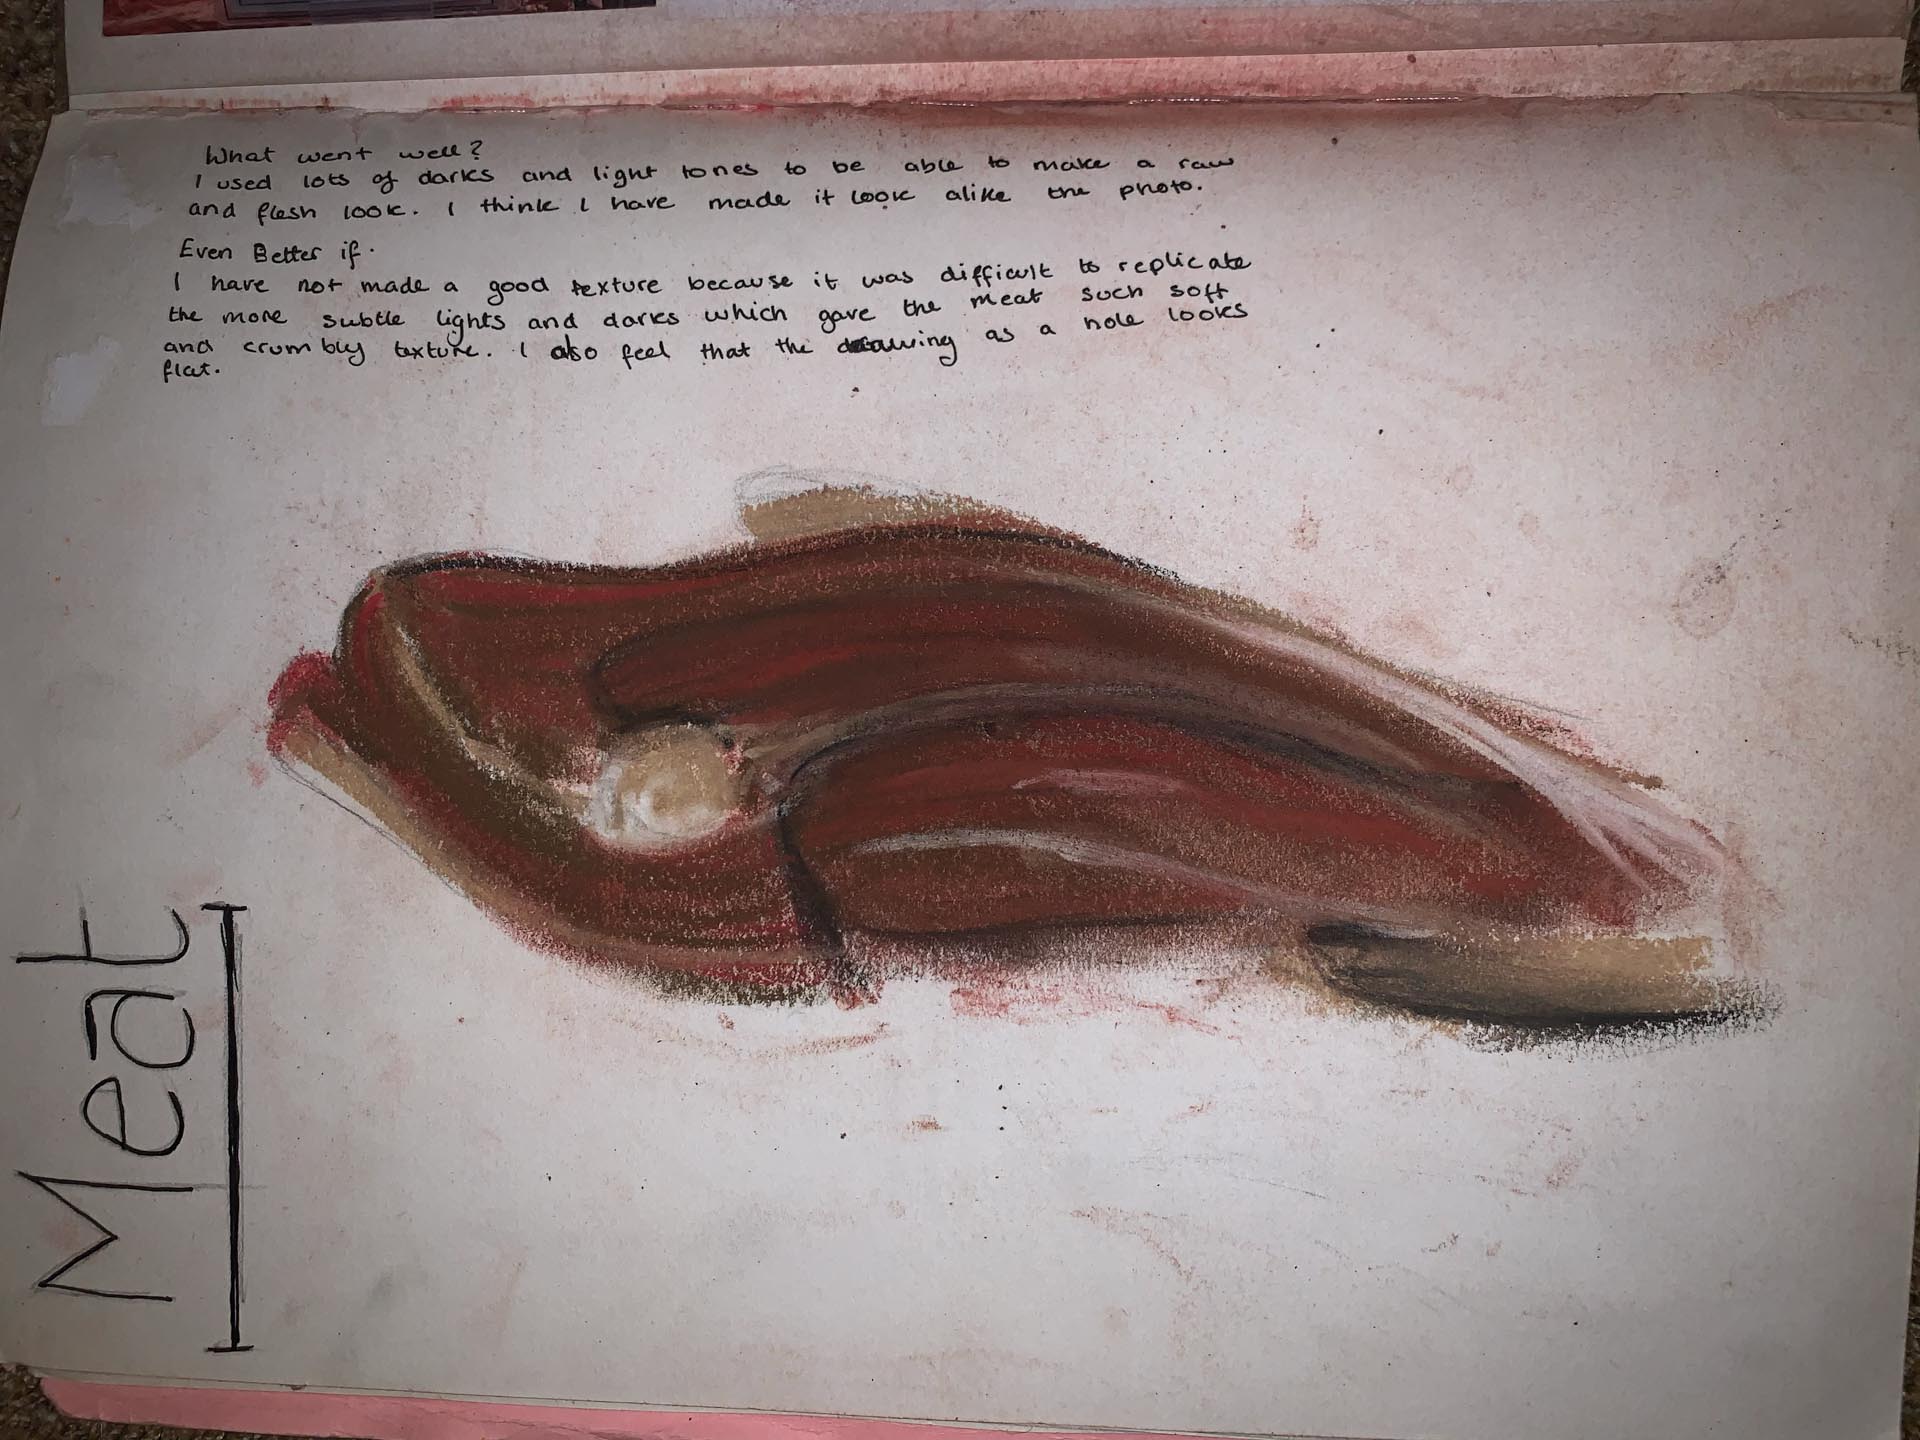 What went well?
I used lots of darks and light tones to be able to make a raw
and flesh look. I think I have made it look alike the photo.
Even Better if.
I have not made a good texture because it was difficult to replicate
the more subtle lights and darks which gave the meat such soft
and crumbly texture. I also feel that the drawing as a hole looks
flat.
Meat